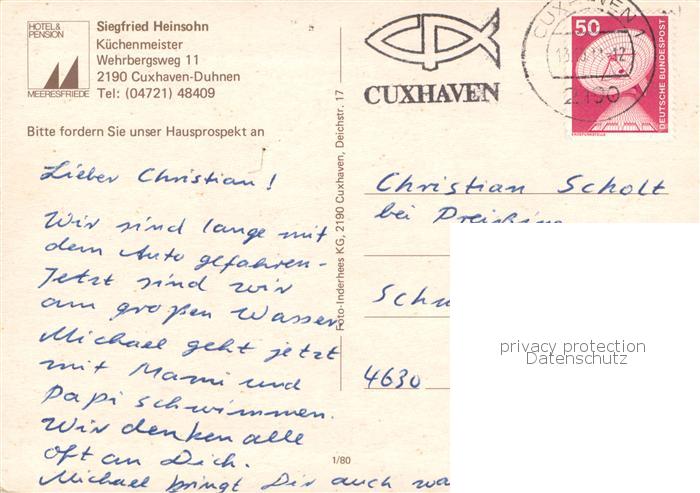 HOTEL &
PENSION
MEERESFRIEDE
Siegfried Heinsohn
Küchenmeister
Wehrbergsweg 11
2190 Cuxhaven-Duhnen
Tel: (04721) 48409
Bitte fordern Sie unser Hausprospekt an
Lieber Christian!
Wir sind lange mit
dem Auto gefahren-
Jetzt sind wir
am großen Wasser
Michael geht jetzt
mit Mami und
Papi schwimmen.
Wir denken alle
oft an Dich.
Michael bringt Dir auch wa
Foto-Inderhees KG, 2190 Cuxhaven, Deichstr. 17
1/80
CUXHAVEN
CUXHAVEN 1
2190
50
DEUTSCHE BUNDESPOST
Christian Scholt
bei
Schu
4630
privacy protection
Datenschutz